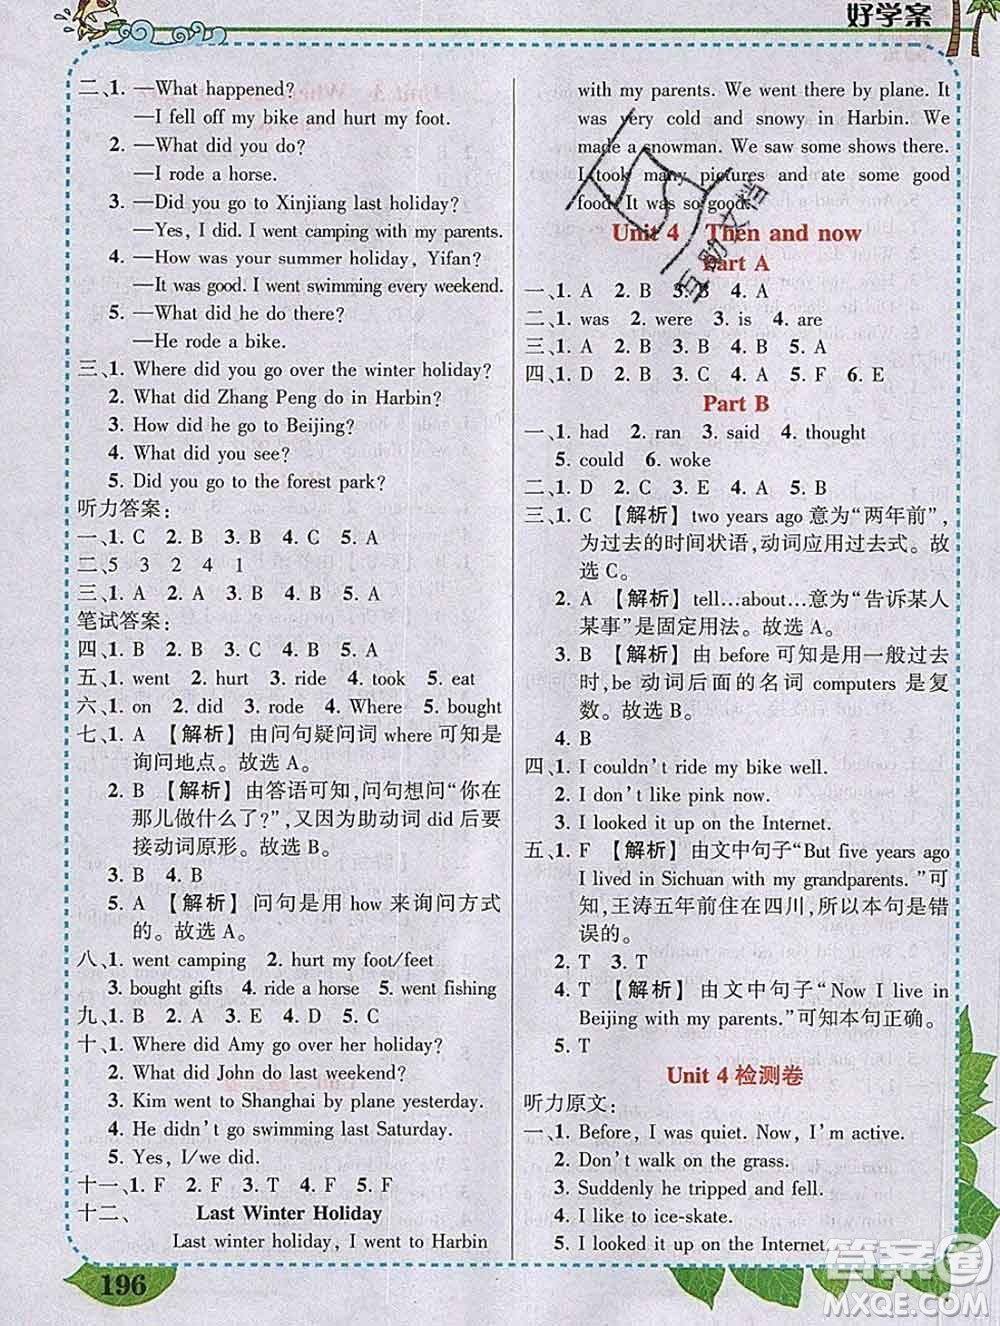 好学案
二、1. —What happened?
—I fell off my bike and hurt my foot.
2. —What did you do?
—I rode a horse.
3. —Did you go to Xinjiang last holiday?
—Yes, I went camping with my parents.
4. —How was your summer holiday, Yifan?
—It was good. I went swimming every weekend.
5. —What did he do there?
—He rode a bike.
三、1. Where did you go over the winter holiday?
2. What did Zhang Peng do in Harbin?
3. How did he go to Beijing?
4. What did you see?
5. Did you go to the forest park?
听力答案:
一、1. C 2. B 3. C 4. B 5. A
二、5 3 2 4 1
三、1. A 2. A 3. B 4. B 5. A
笔试答案:
四、1. B 2. B 3. A 4. B 5. A
五、1. went 2. hurt 3. ride 4. took 5. eat
六、1. on 2. did 3. rode 4. Where 5. bought
七、1. A 【解析】由问句疑问词 where 可知是
询问地点。故选 A。
2. B 【解析】由答语可知,问句想问“你在
那儿做什么了?”,又因为助动词 did 后要
接动词原形。故选 B。
3. B 4. B
5. A 【解析】问句是用 how 来询问方式
的。故选 A。
八、1. went camping 2. hurt my foot/feet
3. bought gifts 4. ride a horse 5. went fishing
九、1. B 2. A 3. E 4. D 5. C
十、1. Where did Amy go over her holiday?
2. What did John do last weekend?
3. Kim went to Shanghai by plane yesterday.
4. He didn't go swimming last Saturday.
5. Yes, I/we did.
十一、1. F 2. F 3. T 4. F 5. F
十二、 Last Winter Holiday
Last winter holiday, I went to Harbin
196
with my parents. We went there by plane. It
was very cold and snowy in Harbin. We
made a snowman. We saw shows there.
I took many pictures and ate some good
food. It was so good.
Unit 4 Then and now
Part A
一、1. A 2. B 3. B 4. A
二、1. was 2. were 3. is 4. are
三、1. A 2. B 3. A 4. B 5. A
四、1. D 2. B 3. C 4. A 5. F 6. E
Part B
一、1. had 2. ran 3. said 4. thought
5. could 6. woke
二、1. D 2. E 3. B 4. C 5. A
三、1. C 【解析】two years ago 意为“两年前”,
为过去的时间状语,动词应用过去式。故
选 C。
2. A 【解析】tell…about…意为“告诉某人
某事”是固定用法。故选 A。
3. B 【解析】由 before 可知是用一般过去
时,be 动词后面的名词 computers 是复
数。故选 B。
4. B
四、1. I couldn't ride my bike well.
2. I don't like pink now.
3. I looked it up on the Internet.
五、1. F 【解析】由文中句子“But five years ago
I lived in Sichuan with my grandparents.”可
知,王涛五年前住在四川,所以本句是错
误的。
2. T 3. T
4. T 【解析】由文中句子“Now I live in
Beijing with my parents.”可知本句正确。
5. T
Unit 4 检测卷
听力原文:
一、1. Before, I was quiet. Now, I'm active.
2. Don't walk on the grass.
3. Suddenly he tripped and fell.
4. I like to ice-skate.
5. I looked it up on the Internet.
答案圈
MXQE.COM